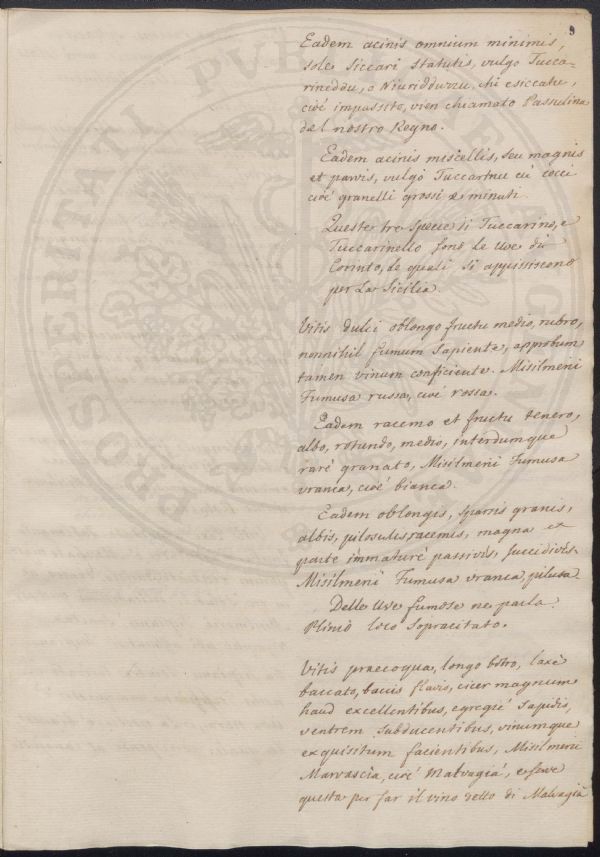 9
Eadem acinis omnium minimis,
sole siccari statutis, vulgo Tucca-
rineddu, o Niuridduzzu, chi esiccatu,
cioè impassito, vien chiamato Passulina
del nostro Regno.
Eadem acinis miscellis, seu magnis
et parvis, vulgò Tuccarinu cù cocci
cioè granelli grossi e minuti.
Queste tre specie di Tuccarino, e
Tuccarinello sono le Uve di
Corinto, le quali si appissiscono
per La Sicilia.
Vitis dulci oblongo fructu medio, rubro,
nonnihil fumum sapiente, approbum
tamen vinum conficiente. Misilmeni
Fumusa russa, cioè rossa.
Eadem racemo et fructu tenero,
albo, rotundo, medio, interdumque
rarè granato, Misilmeni Fumusa
vranca, cioè bianca.
Eadem oblongis, sparsis granis,
albis, pilosulis, racemis, magna ex
parte immaturè passivis, succidivis.
Misilmeni Fumusa vranca pilusa.
Delle Uve fumose ne parla
Plinio loco sopracitato.
Vitis praecoqua, longo botro, laxè
baccato, baccis flavis, cicer magnum
haud excellentibus, egregiè sapidis,
ventrem subducentibus, vinumque
exquisitum facientibus, Misilmeni
Marvascia, cioè Malvagià, e serve
questa per far il vino detto di Malvagià
PUBLICAE
PROSPERITATI